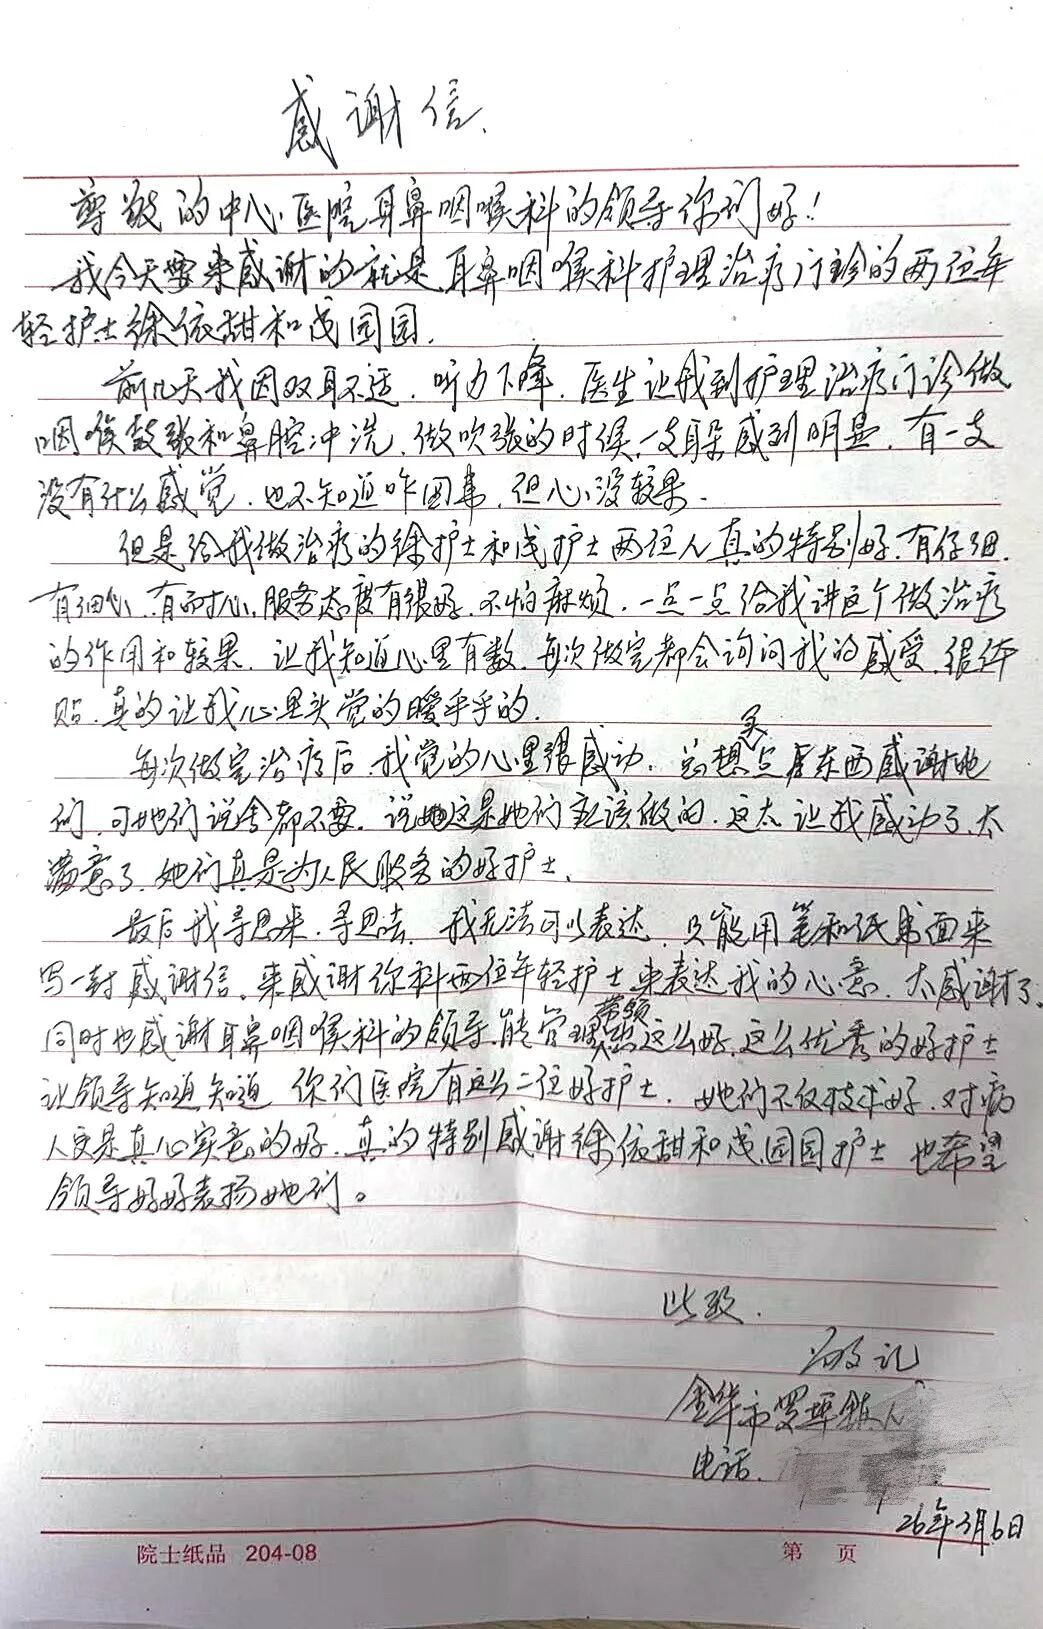 感谢信.
尊敬的中心医院耳鼻咽喉科的领导你们好!
我今天要来感谢的就是耳鼻咽喉科护理治疗门诊的两位年
轻护士徐依甜和戊园园.
前几天我因双耳不适.听力下降.医生让我到护理治疗门诊做
咽喉鼓张和鼻腔冲洗.做吹张的时候一支耳朵感到明显.有一支
没有什么感觉.也不知道咋回事.但心没较果.
但是给我做治疗的徐护士和戊护士两位人真的特别好.有仔细.
有细心.有耐心.服务态度有很好.不怕麻烦.一点一点给我讲这个做治疗
的作用和较果.让我知道心里有数.每次做完都会询问我的感受.很体
贴.真的让我心里头觉的暖乎乎的.
每次做完治疗后.我觉的心里很感动.总想买点东西感谢她
们.可她们说舍都不要.说这是她们应该做的.这太让我感动了.太
满意了.她们真是为人民服务的好护士.
最后我寻思来.寻思去.我无法可以表达.只能用笔和纸书面来
写一封感谢信.来感谢你科两位年轻护士来表达我的心意.太感谢了.
同时也感谢耳鼻咽喉科的领导.能管理带领出这么好.这么优秀的好护士
让领导知道知道 你们医院有这么二位好护士.她们不仅技术好.对病
人更是真心实意的好.真的特别感谢徐依甜和戊园园护士 也希望
领导好好表扬她们。
此致.
敬礼
金华市罗埠镇人
电话.
26年3月6日
院士纸品 204-08
第 页